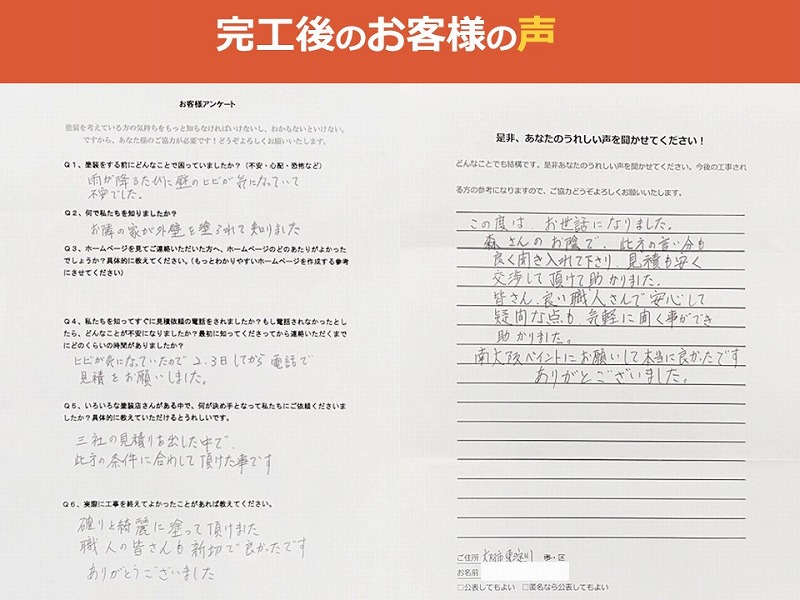 完工後のお客様の声
お客様アンケート
塗装を考えている方の気持ちをもっと知らなければいけないし、わからないといけない。
ですから、あなた様のご協力が必要です！どうぞよろしくお願いいたします。
Q1、塗装をする前にどんなことで困っていましたか？（不安・心配・恐怖など）
雨が降るたびに壁のヒビが気になっていて
不安でした。
Q2、何で私たちを知りましたか？
お隣の家が外壁を塗られて知りました
Q3、ホームページを見てご連絡いただいた方へ、ホームページのどのあたりがよかった
でしょうか？具体的に教えてください。（もっとわかりやすいホームページを作成する参考
にさせてください）
Q4、私たちを知ってすぐに見積依頼の電話をされましたか？もし電話されなかったとし
たら、どんなことが不安になりましたか？最初に知ってくださってから連絡いただくまで
にどのくらいの時間がありましたか？
ヒビが気になっていたので2、3日してから電話で
見積をお願いしました。
Q5、いろいろな塗装店さんがある中で、何が決め手となって私たちにご依頼くださいま
したか？具体的に教えていただけるとうれしいです。
三社の見積りを出した中で、
此方の条件に合わして頂けた事です
Q6、実際に工事を終えてよかったことがあれば教えてください。
確りと綺麗に塗って頂けました
職人の皆さんも新切で良かったです
ありがとうございました
是非、あなたのうれしい声を聞かせてください！
どんなことでも結構です。是非あなたのうれしい声を聞かせてください。今後の工事され
る方の参考になりますので、ご協力どうぞよろしくお願いいたします。
この度は、お世話になりました。
森さんのお陰で、此方の言い分も
良く聞き入れて下さり、見積も安く
交渉して頂けて助かりました。
皆さん、良い職人さんで安心して
疑問な点も気軽に聞く事ができ
助かりました。
南大阪ペイントにお願いして本当に良かったです
ありがとございました。
ご住所 大阪市東淀川 市・区
お名前
□公表してもよい □匿名なら公表してもよい